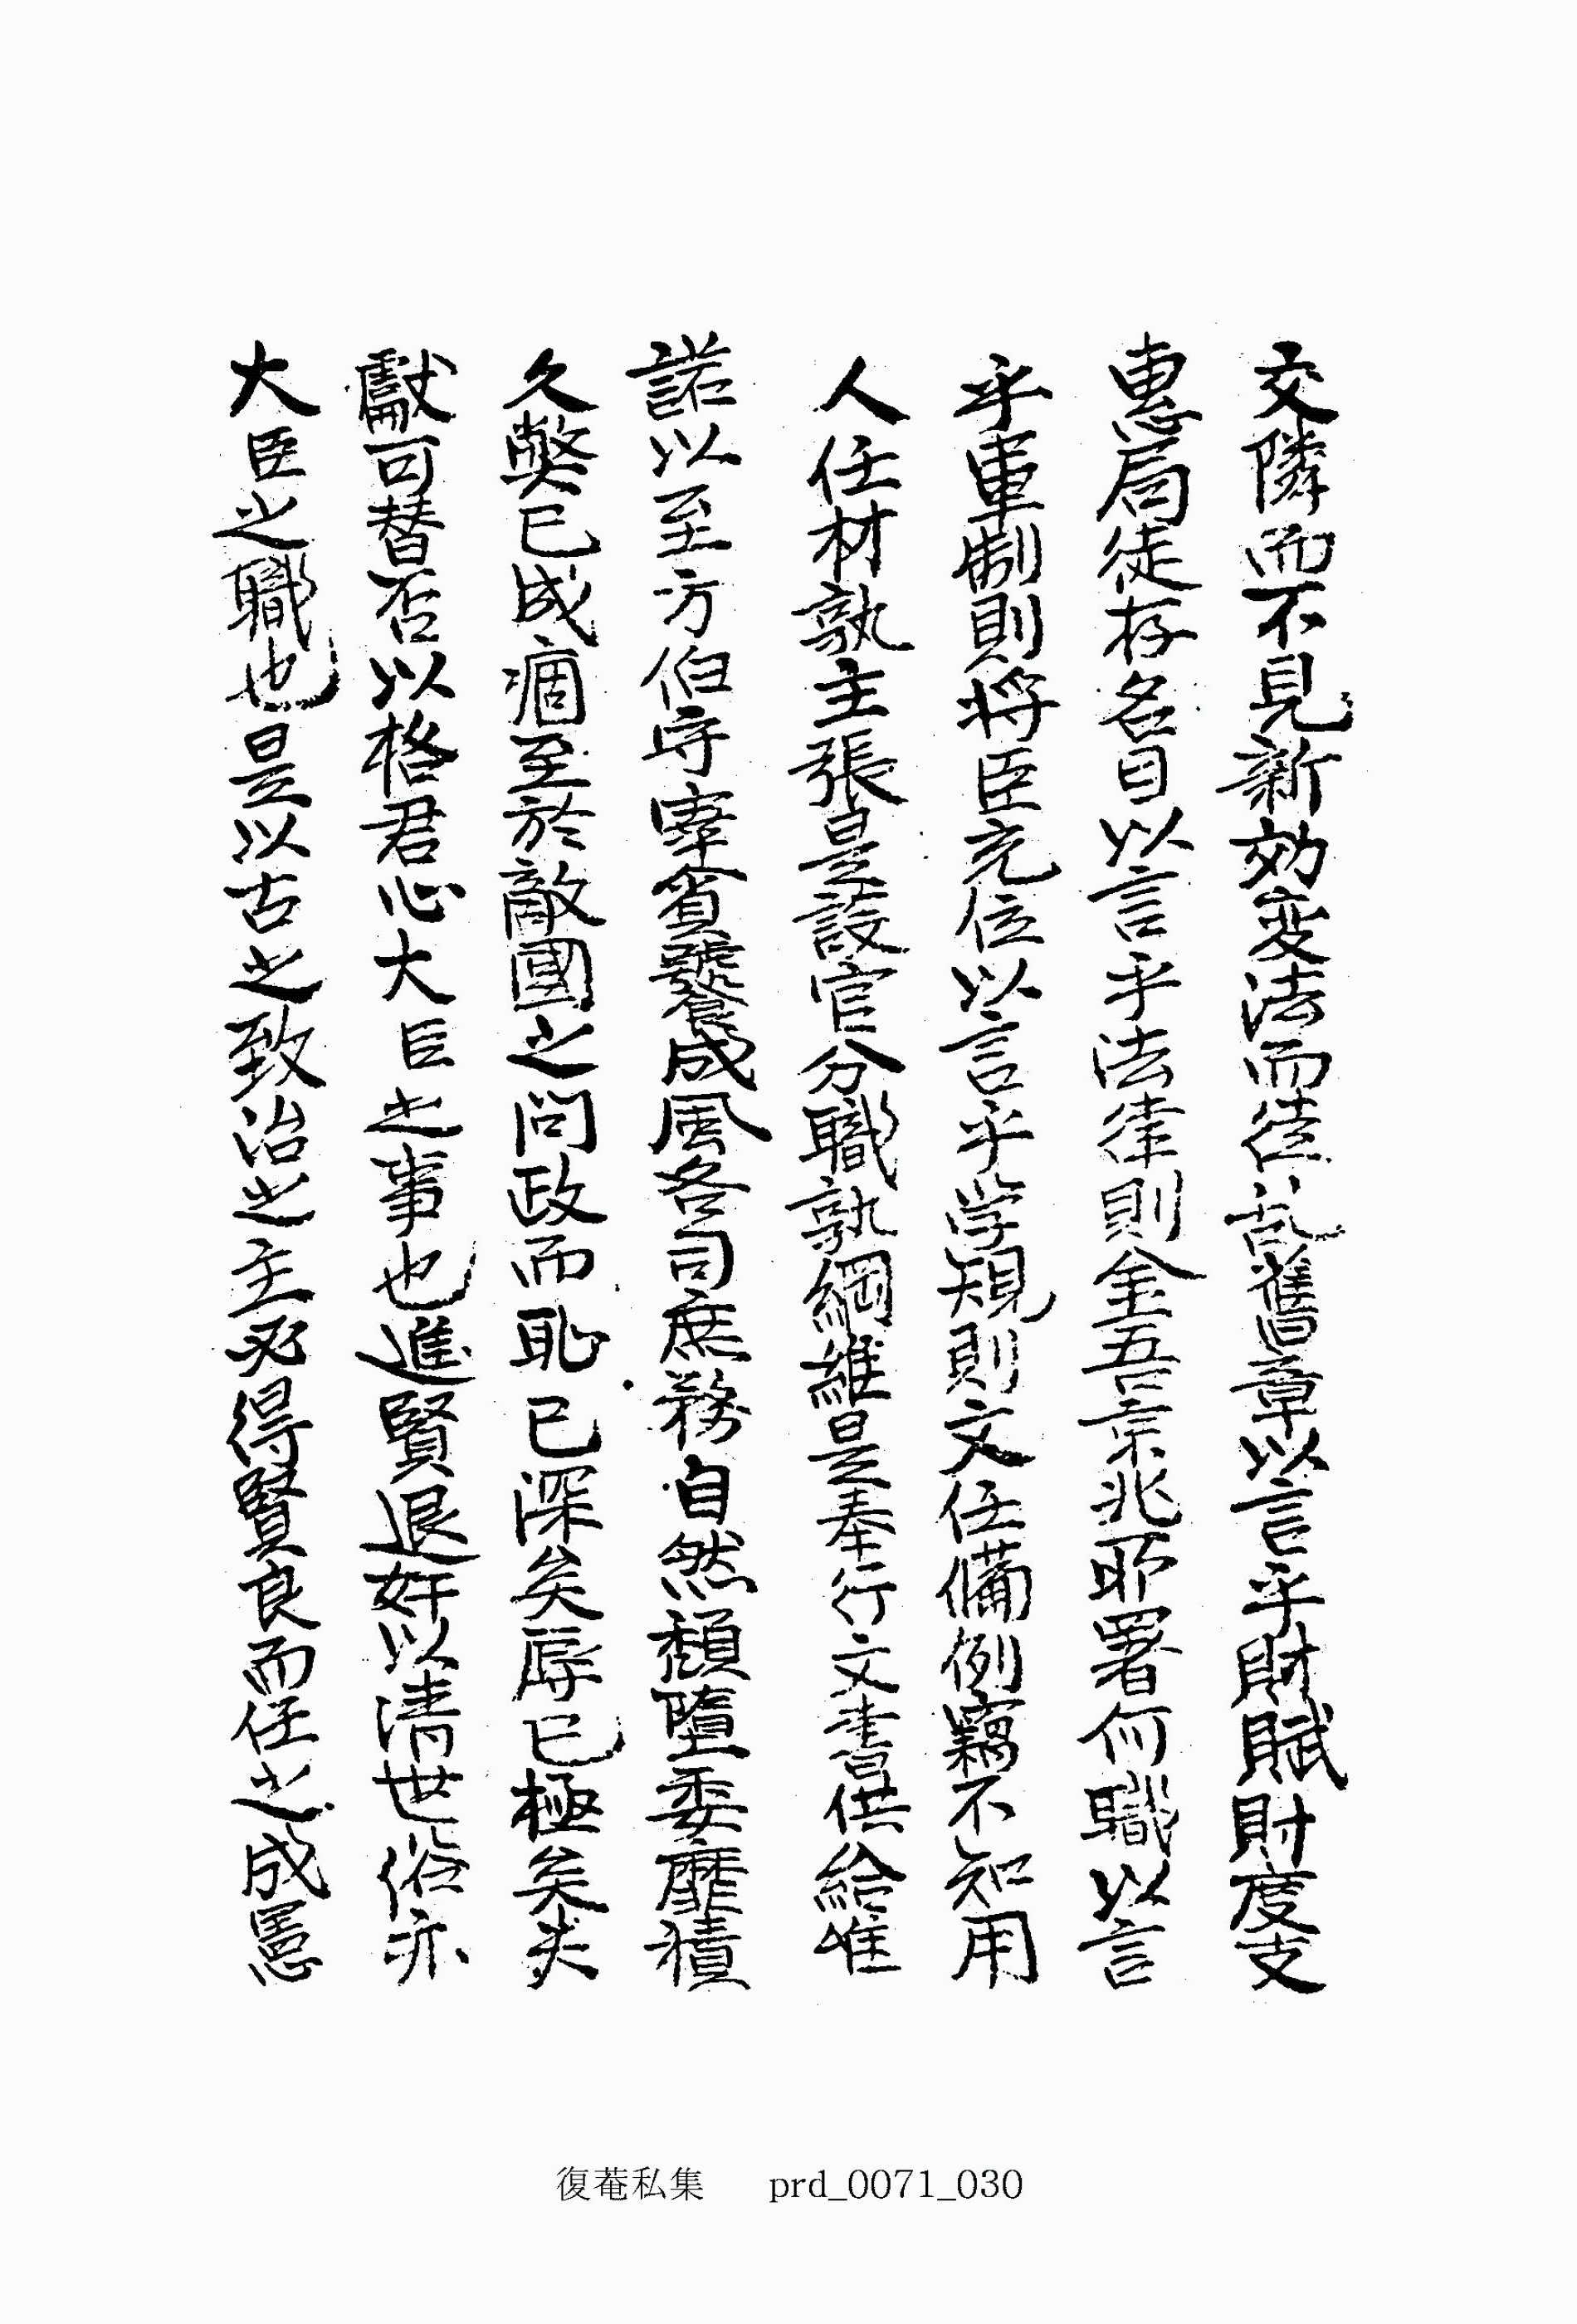 交隣而不見新効変法而徒乱舊章以言乎財賦財度支
惠局徒存名目以言乎法律則金吾京兆耶署何職以言
乎軍制則将臣充位以言乎学規則文任備例竊不知用
人任材孰主張是設官分職孰綱維是奉行文書供給唯
諾以至方伯守宰賓饕成風各司庶務自然頹墮委靡積
久獘已成痼至於敵國之問政而恥已深矣辱已極矣夫
獻可替否以格君心大臣之事也進賢退奸以清世俗亦
大臣之職也是以古之致治之主必得賢良而任之成憲
復菴私集 prd_0071_030